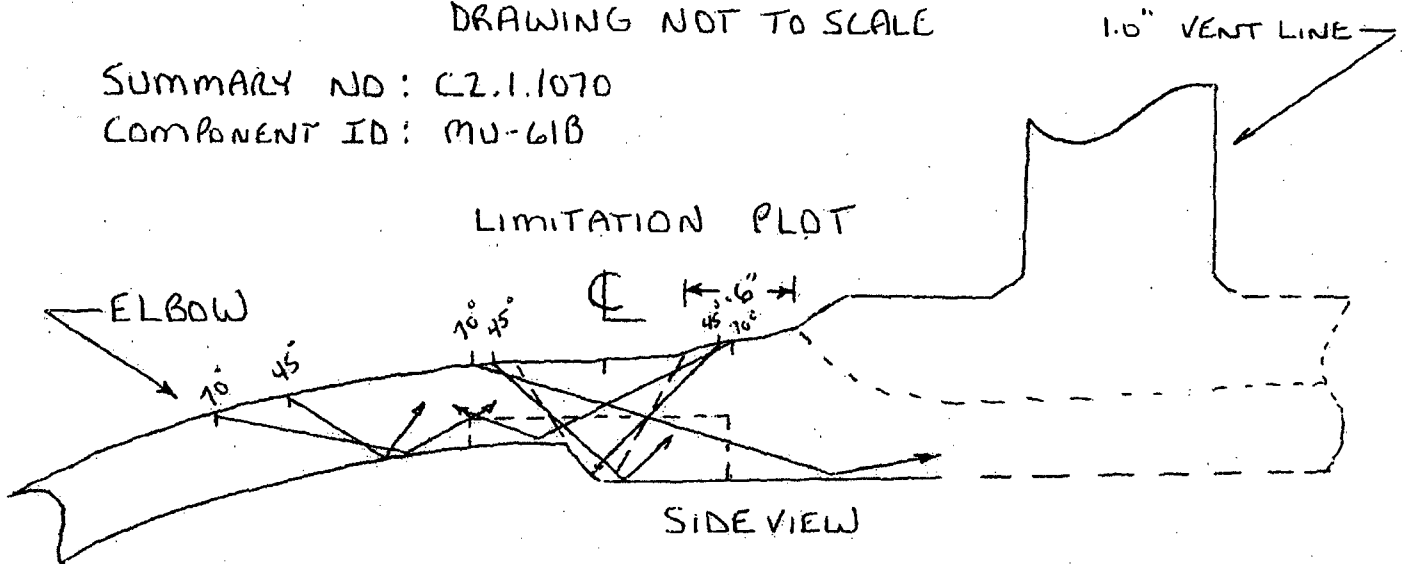 DRAWING NOT TO SCALE
1.0" VENT LINE
SUMMARY NO: C2.1.1070
COMPONENT ID: MU-61B
LIMITATION PLOT
℄
.6"
ELBOW
70° 45°
70° 45°
45° 70°
SIDE VIEW